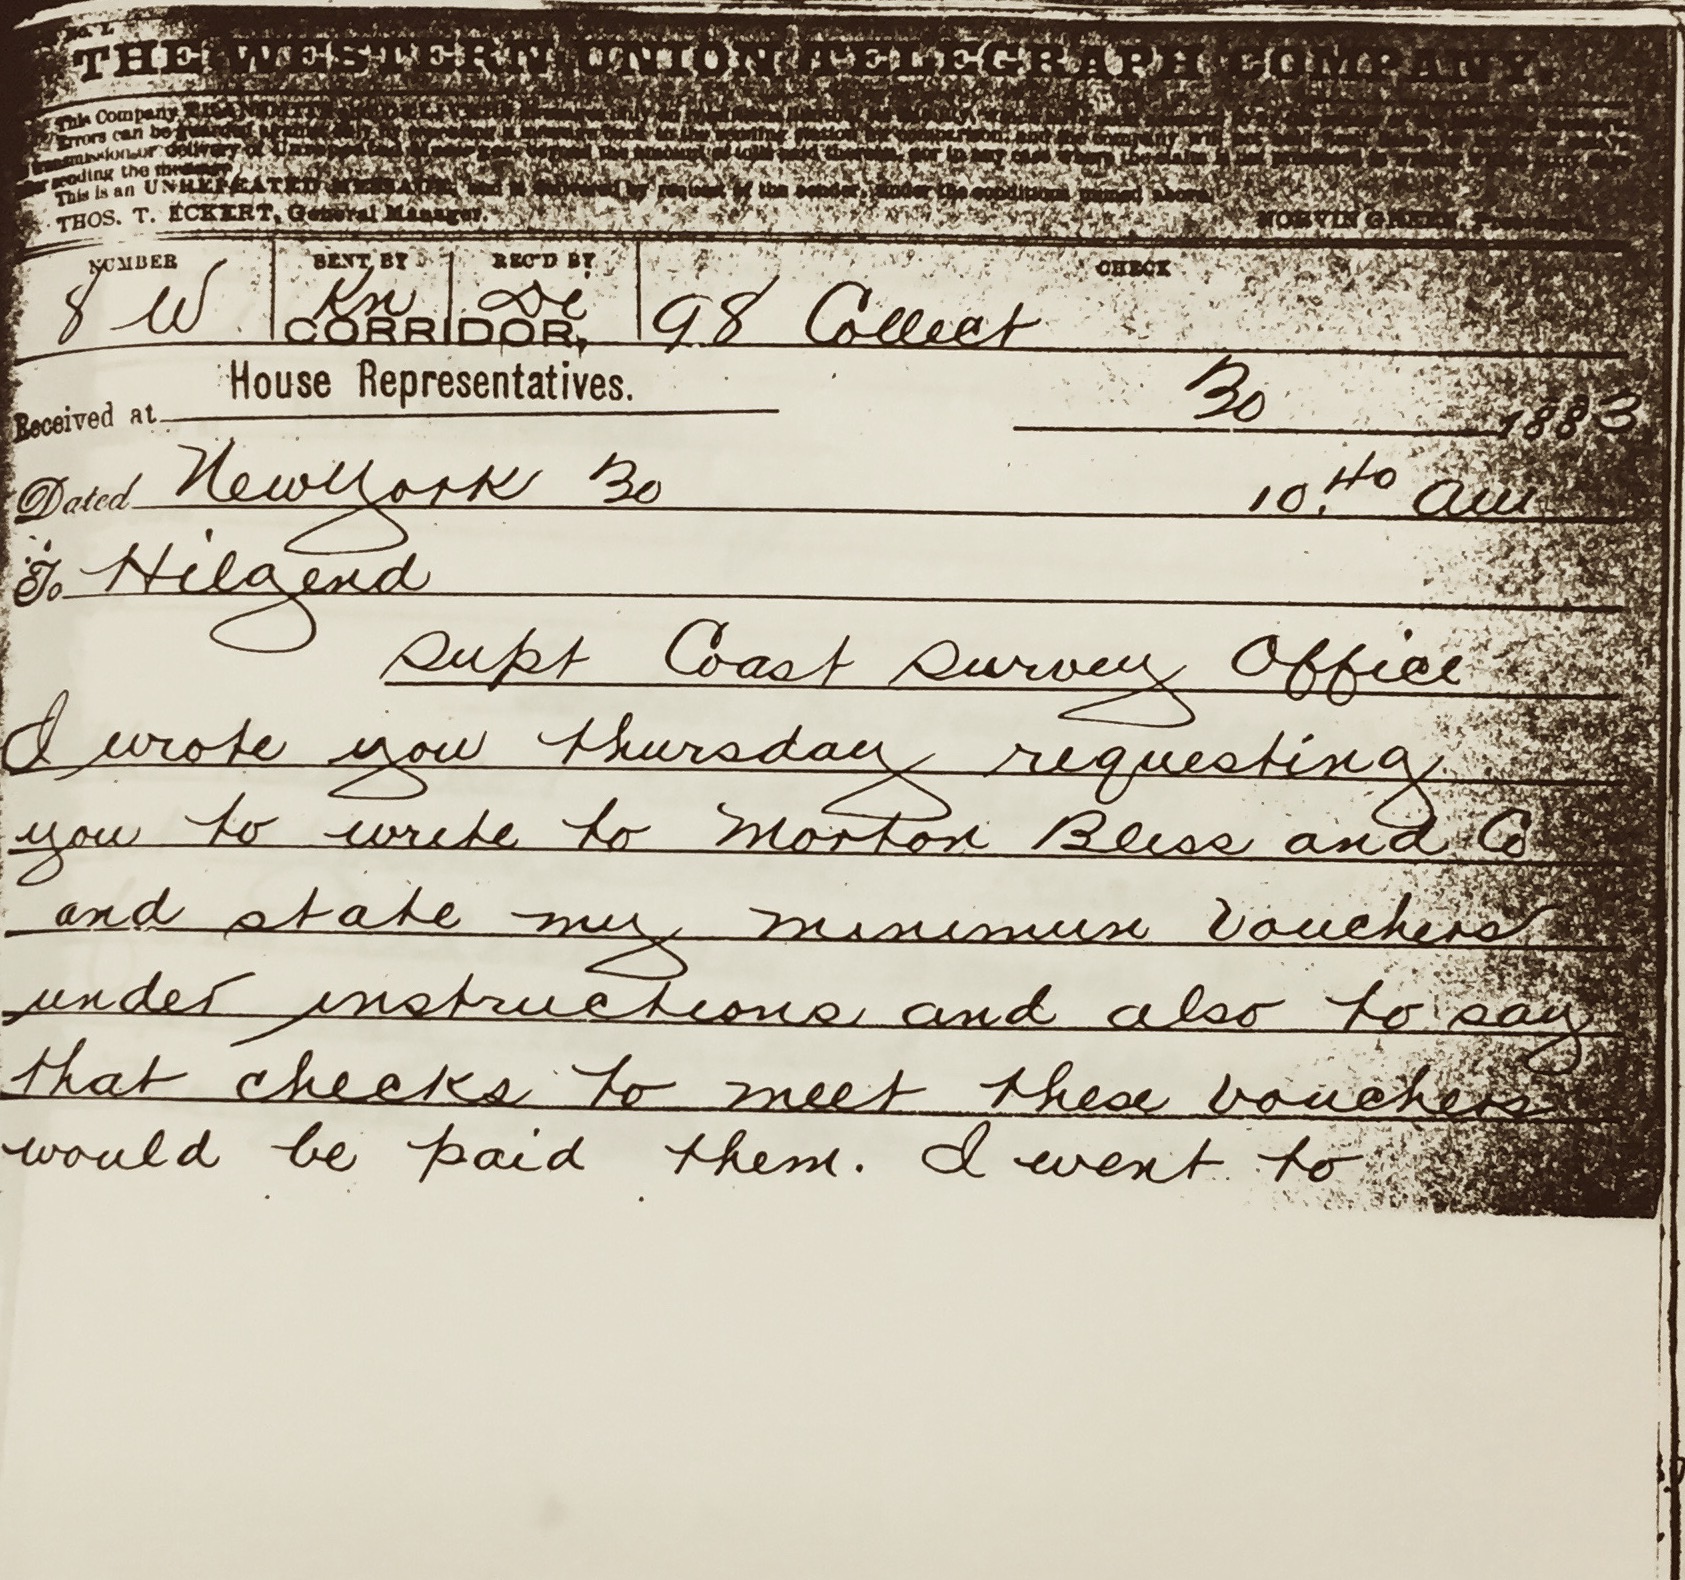 THE WESTERN UNION TELEGRAPH COMPANY.
This Company
Errors can be
transmission or delivery of
sending the message.
This is an UNREPEATED MESSAGE, and is delivered by request of the sender, under the conditions named above.
THOS. T. ECKERT, General Manager. NORVIN GREEN, President.
NUMBER SENT BY REC'D BY CHECK
8 W Kn De 98 Collect
CORRIDOR,
House Representatives.
Received at 30 1883
Dated New York 30 10.40 am
To Hilgend
Supt Coast Survey Office
I wrote you thursday requesting
you to write to Morton Bliss and Co
and state my minimun vouchers
under instructions and also to say
that checks to meet these vouchers
would be paid them. I went to